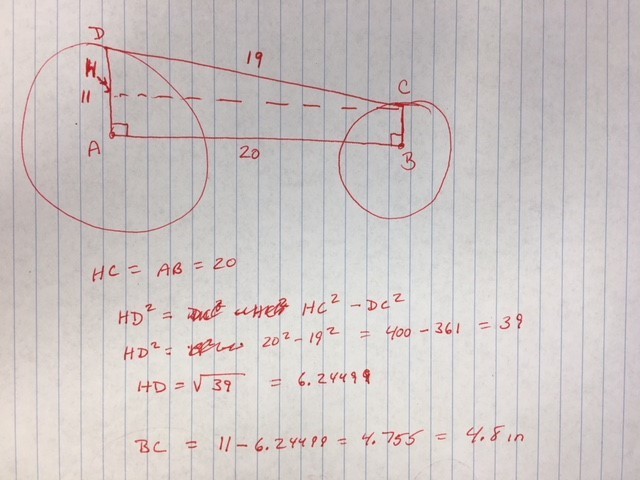 D
19
H
11
C
A
20
B
HC = AB = 20
HD² = HC² - DC²
HD² = 20² - 19² = 400 - 361 = 39
HD = √39 = 6.24499
BC = 11 - 6.24499 = 4.755 = 4.8 in